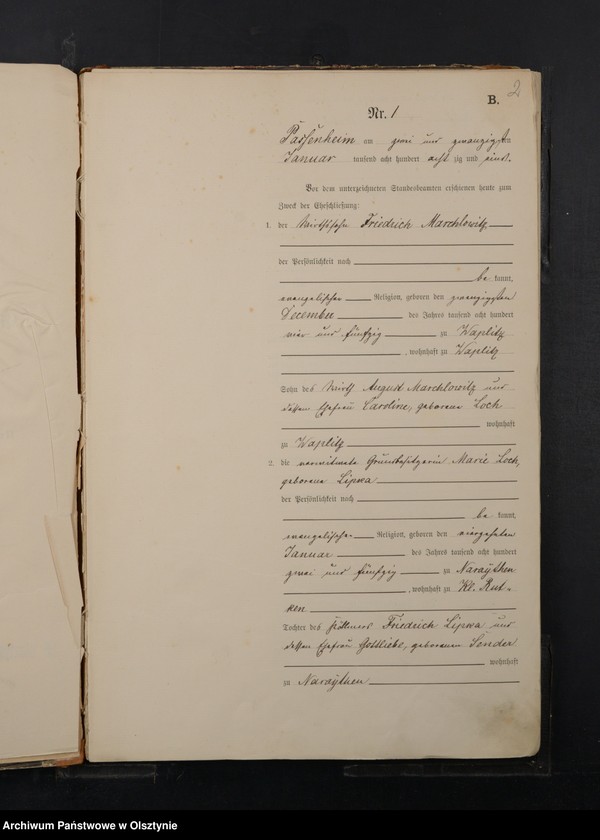 2
B.
Nr. 1
Passenheim am zwei und zwanzigsten
Januar tausend acht hundert achtzig und eins.
Vor dem unterzeichneten Standesbeamten erschienen heute zum
Zweck der Eheschließung:
1. der Wirthssohn Friedrich Marchlowitz
der Persönlichkeit nach
be kannt,
evangelischer Religion, geboren den zwanzigsten
December des Jahres tausend acht hundert
vier und fünfzig zu Waplitz
, wohnhaft zu Waplitz
Sohn des Wirth August Marchlowitz und
dessen Ehefrau Caroline, geborene Loch
wohnhaft
zu Waplitz
2. die verwittwete Grundbesitzerin Marie Loch,
geborene Lipka
der Persönlichkeit nach
be kannt,
evangelischer Religion, geboren den vierzehnten
Januar des Jahres tausend acht hundert
zwei und fünfzig zu Narajthen
, wohnhaft zu Kl. Rut-
ken
Tochter des Friedrich Lipka und
dessen Ehefrau Gottliebe, geborenen Sender
wohnhaft
zu Narajthen
Archiwum Państwowe w Olsztynie